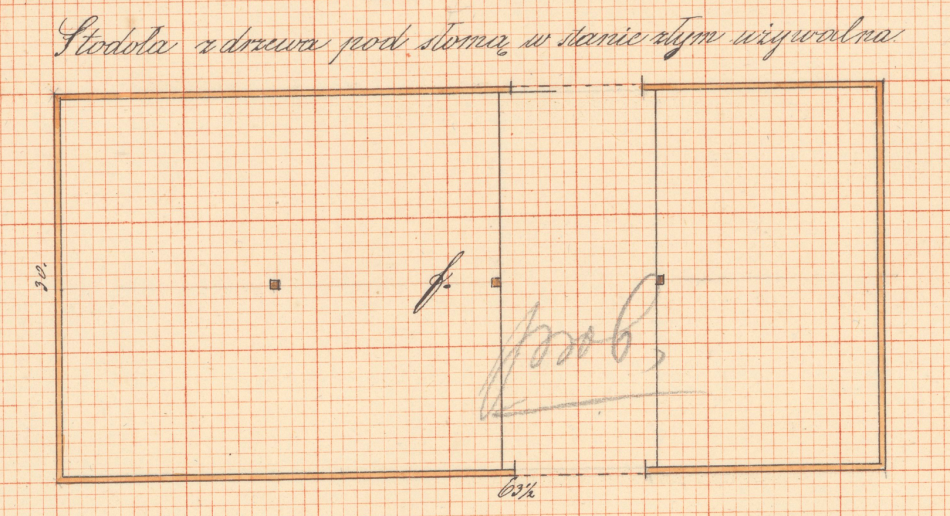 Stodoła z drzewa pod słomą w stanie złym używalna.
30.
f.
63½